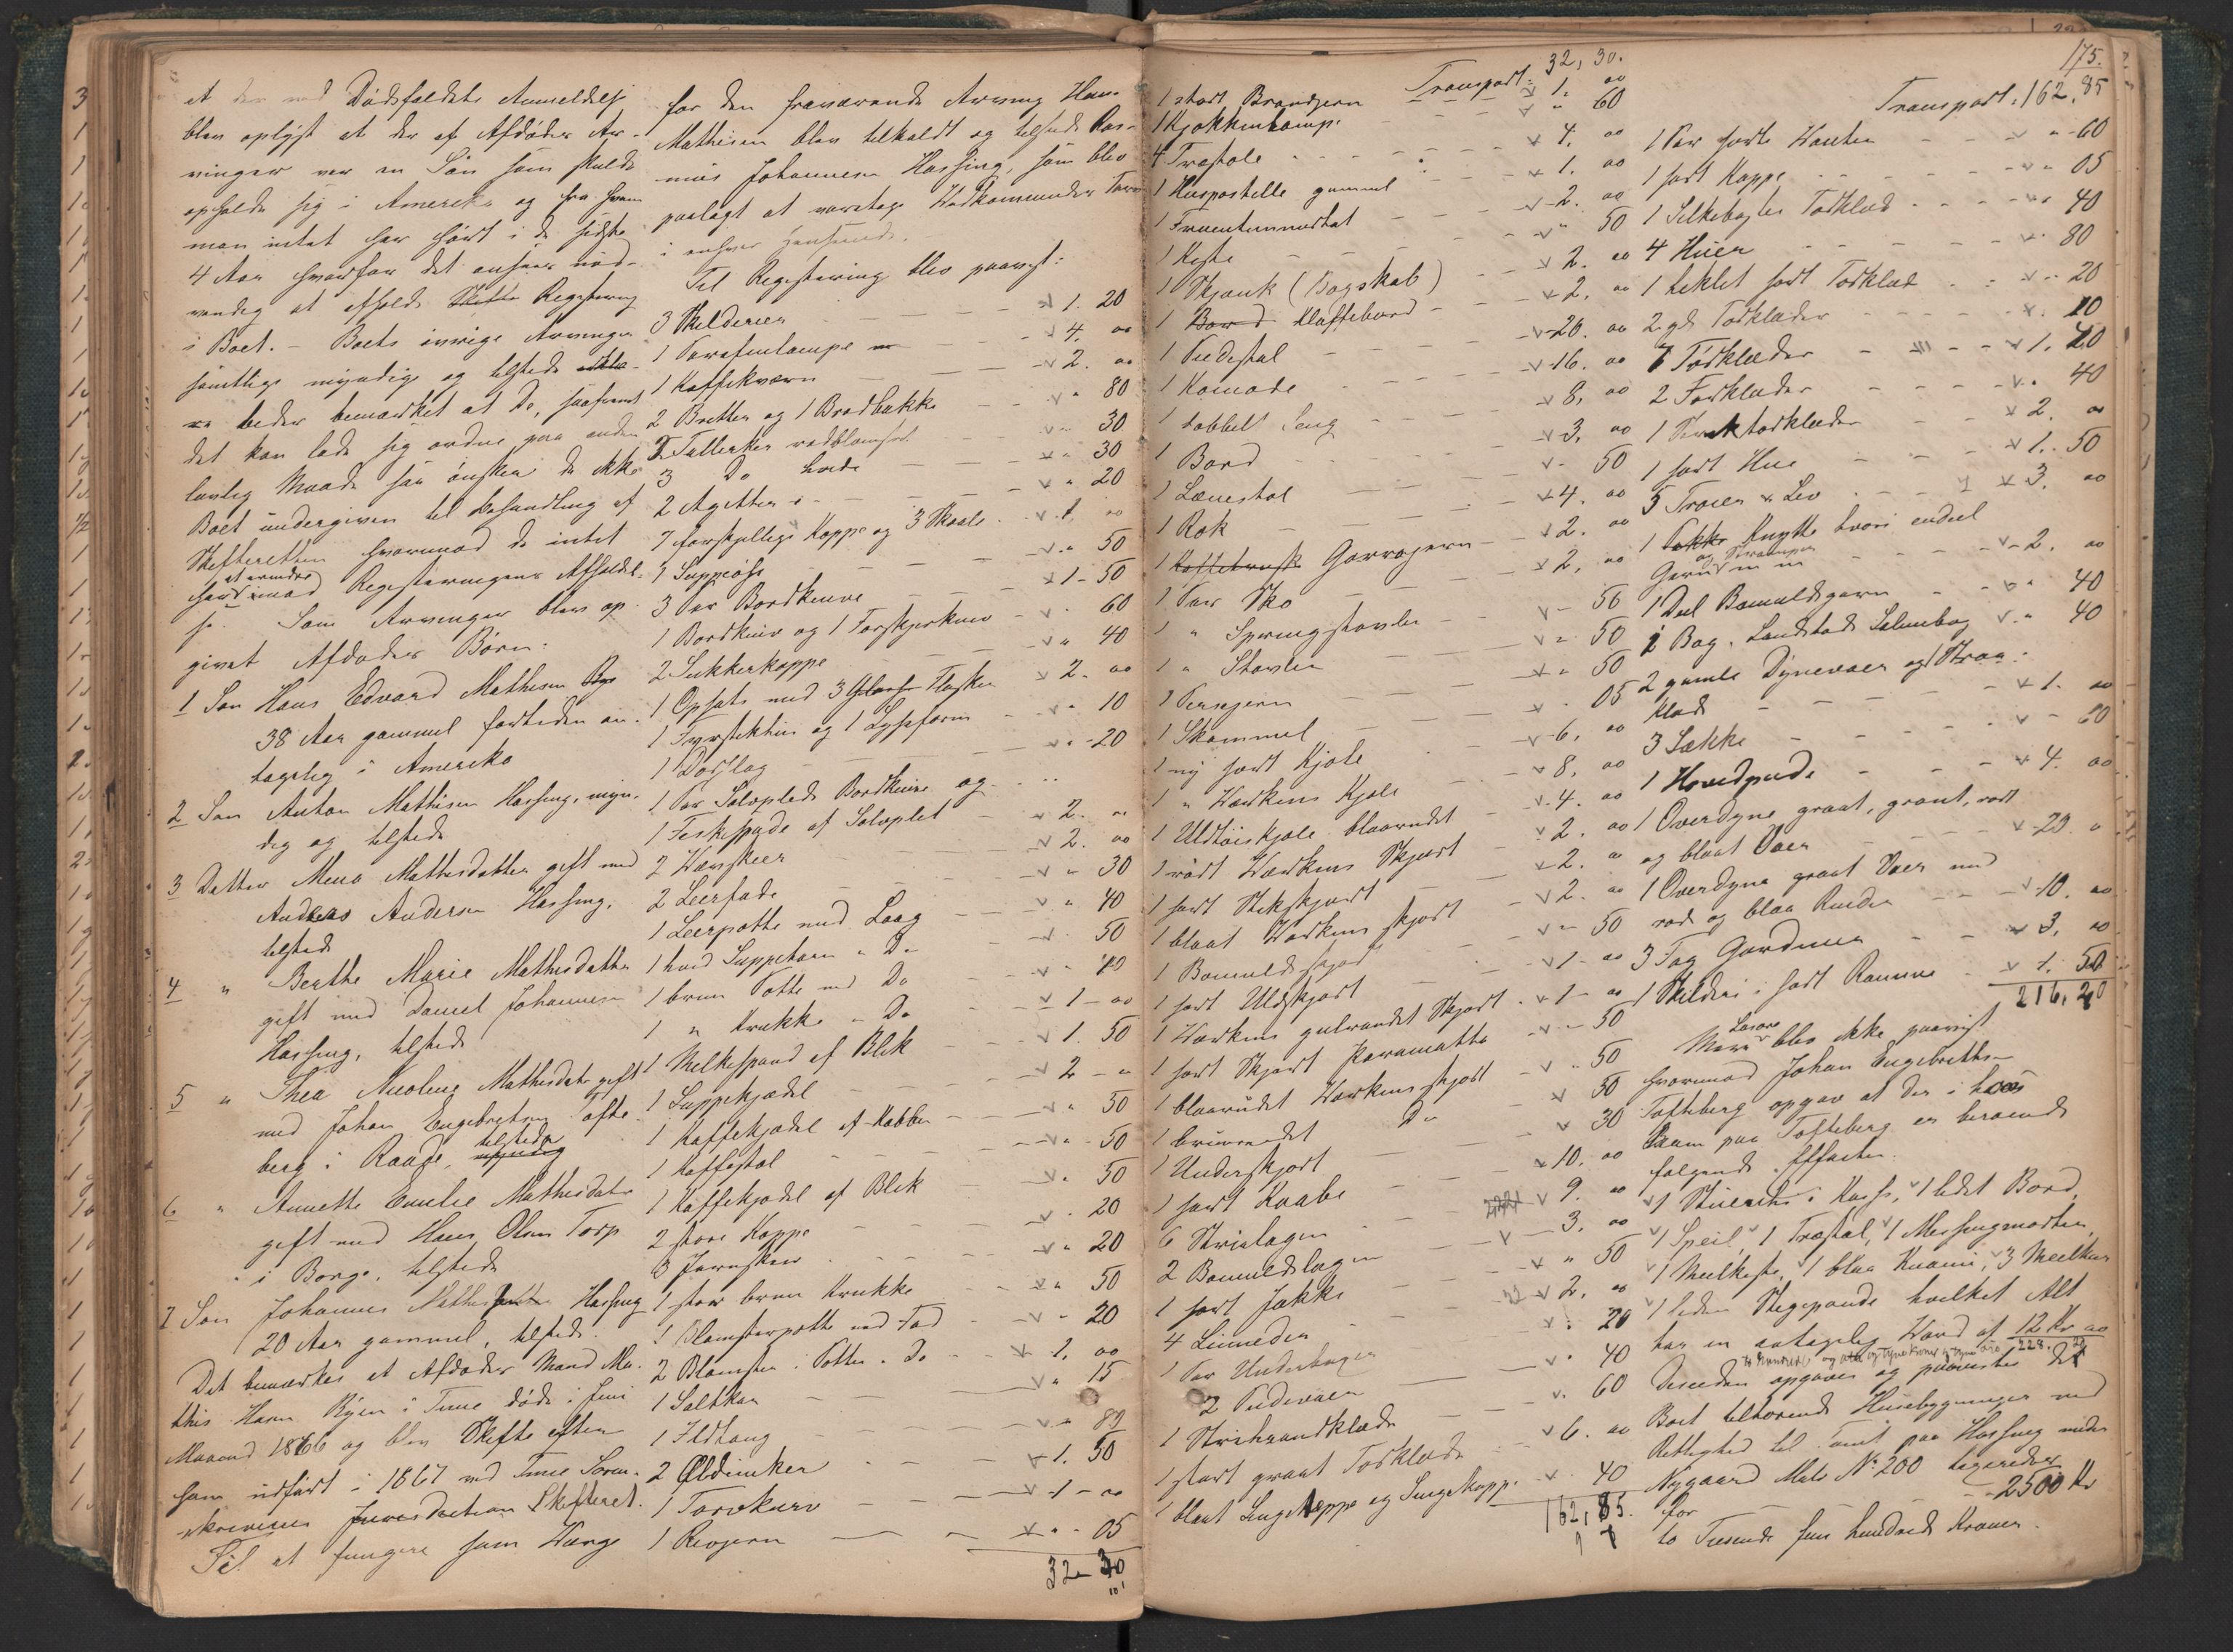 at der ved Dødsfaldets Anmeldelse
blev oplyst at der af Afdødes Ar-
vinger var en Søn som skulde
opholde sig i Amerika og fra hvem
man intet har hørt i de sidste
4 Aar hvorfor det ansees nød-
vendig at afholde Skifte Registering
i Boet. – Boets øvrige Arvinger
samtlige myndige og tilstede
beder bemærket at De, saafremt
det kan lade sig ordne paa anden
lovlig Maade saa ønsker de ikke
Boet undergiven til Behandling af
Skifteretten hvorimod de intet
har at erindre imod Registeringens Afholdel-
se. Som Arvinger blev op-
givet Afdødes Børn:
1 Søn Hans Edvard Mathisen
38 Aar gammel fortiden an-
tagelig i Amerika
2 Søn Anton Mathisen Hassing, myn-
dig og tilstede
3 Datter Mina Mathisdatter gift med
Andreas Andersen Hassing,
tilstede
4 " Berthe Marie Mathisdatter
gift med Daniel Johannesen
Hassing, tilstede
5 " Thea Nicoline Mathisdatr gift
med Johan Engebretsen Tofte-
berg i Raade, tilstede
6 " Annette Emilie Mathisdatr
gift med Hans Olsen Torp
i Borge, tilstede
7 Søn Johannes Mathisen Hassing
20 Aar gammel, tilstede.
Det bemærkes at Afdødes Mand Ma-
this Hansen i Tune døde i Juni
Maaned 1866 og blev Skifte efter
ham udført i 1867 ved Tune Soren-
skriveries Jurisdiction Skifteret.
Til at fungere som Værge
for den fraværende Arving Hans
Mathisen blev tilkaldt og tilstede Ras-
mus Johannesen Hassing, som blev
paalagt at varetage Vedkommendes Tarv
i enhver Henseende.
Til Registering blev paavist:
3 Skilderier 1. 20
1 Parafinlampe 4. oo
1 Kaffekværn 2. oo
2 Bretter og 1 Brødbakke " 80
2 Tallerker rødblomset " 30
3 Do hvide " 30
2 Agetter " 20
7 forskjellige Koppe og 3 Skaale 1. oo
1 Suppeøse " 50
3 Par Bordknive 1 - 50
1 Bordkniv og 1 Forskjerkniv " 60
2 Sukkerkoppe " 40
1 Opsats med 3 Flasker 2. oo
1 Fyrstikktin og 1 Lyseform " 10
1 Dørslag " 20
1 Par Sølvplede Bordknive og
1 Fiskespade af Sølvplet 2. "
2 2. oo
2 Leerfade " 30
1 Leerpotte med Laag " 40
1 hvid Suppeterin " Do " 50
1 brun Potte med Do " 40
1 " Krukke " Do 1 - oo
1 Melkespand af Blik 1. 50
1 Suppekjedel 2 - "
1 Kaffekjedel af Kobber " 50
1 Kaffestal " 50
1 Kaffekjedel af Blik " 50
2 store Koppe " 20
3 " 20
1 stor brun Krukke " 50
1 Blomsterpotte med Fad " 20
2 Blomster i Potter " Do 1. oo
1 Saltkar " 15
1 Ildtang " 80
2 1. 50
1 Torvkurv 1 - oo
1 Revjern " 05
32 - 30
Transport: 32, 30.
1 stort Brandjern 1. oo
1 Kjøkkenlampe " 60
4 Træstole 4. oo
1 Huspostille gammel 1. oo
1 2. oo
1 Kiste " 50
1 Skjænk (Bogskab) 2. oo
1 Bord Klaffebord 2, oo
1 Piedestal 20. oo
1 Komode 16. oo
1 dobbelt Seng 8, oo
1 Bord 3, oo
1 Lænestol " 50
1 Rok 4. oo
1 Gorrojern 2. oo
1 Par Sko 2, oo
1 " Springstøvler - 50
1 " Støvler " 50
1 Persejern " 50
1 Skammel " 05
1 ny sort Kjole 6, oo
1 " Værkens Kjole 8, oo
1 Uldtøiskjole blaarudet 4. oo
1 rødt Værkens Skjørt 2. oo
1 sort Stikskjørt 2. "
1 blaat Værkens skjørt 2. oo
1 Bomuldsskjørt " 50
1 sort Uldskjørt 1 - oo
1 Værkens gulrandet Skjørt 1 - oo
1 sort Skjørt Paramatta - 50
1 blaarudet Værkens skjørt " 50
1 Do 50
1 Underskjørt 30
1 sort Kaabe 10. oo
6 Strielagen 9. oo
2 Bomuldslagen 3. oo
1 sort Jakke " 50
4 Linneder 2. oo
1 Par Underbuxer " 20
2 Pudevaer " 40
1 Striehaandklæde " 60
1 stort graat Tørklæde 6. oo
1 blaat Sengeteppe og Sengekappe 40
162, 85.
175.
Transport: 162, 85
1 Par sorte Vanter " 60
1 sort Kappe " 05
1 Silkebagtes Tørklæd " 40
4 Huer 80
1 heklet sort Tørklæd " 20
2 gl. Tørklæder " 10
7 Tørklæder 1. 20
2 Forklæder " 40
1 2. oo
1 sort Hue 1. 50
5 Trøier & Liv 3. oo
1 Knytte hvori endeel
Garn og Strømper 2. oo
1 Deel Bomuldsgarn " 40
1 Bog. Landstads Salmebog " 40
2 gamle Dynevaer og 1 Straa-
klæde 1. oo
3 Sække " 60
1 Hovedpude 4. oo
1 Overdyne graat, grønt, rødt
og blaat Vaer 20 "
1 Overdyne graat Vaer med
røde og blaa Ruder 10. oo
3 Fag Gardiner 3. oo
1 Skilderi i sort Ramme 1. 50
216. 20
Mere Løsøre blev ikke paavist
hvorimod Johan Engebrethsen
Tofteberg opgav at der i hans
Værum paa Tofteberg er beroende
følgende Effecter.
1 Stueuhr i Kasse, 1 lidet Bord,
1 Speil, 1 Træstol, 1 Messingmorter,
1 Meelkiste, 1 blaa Kvarni, 3 Meelkar
1 liden Stegepande hvilket Alt
har en antagelig Værd af 12 Kr oo
to Hundrede og otte og tyve Kroner og tyve øre 228. 20
Desuden opgaves og paavistes det
Boet tilhørende Huusbygninger med
Rettighed til Tomt paa Hassing under
Nygaard Matr No 200 taxeredes
for 2500 Kr
to Tusende fem hundrede Kroner.